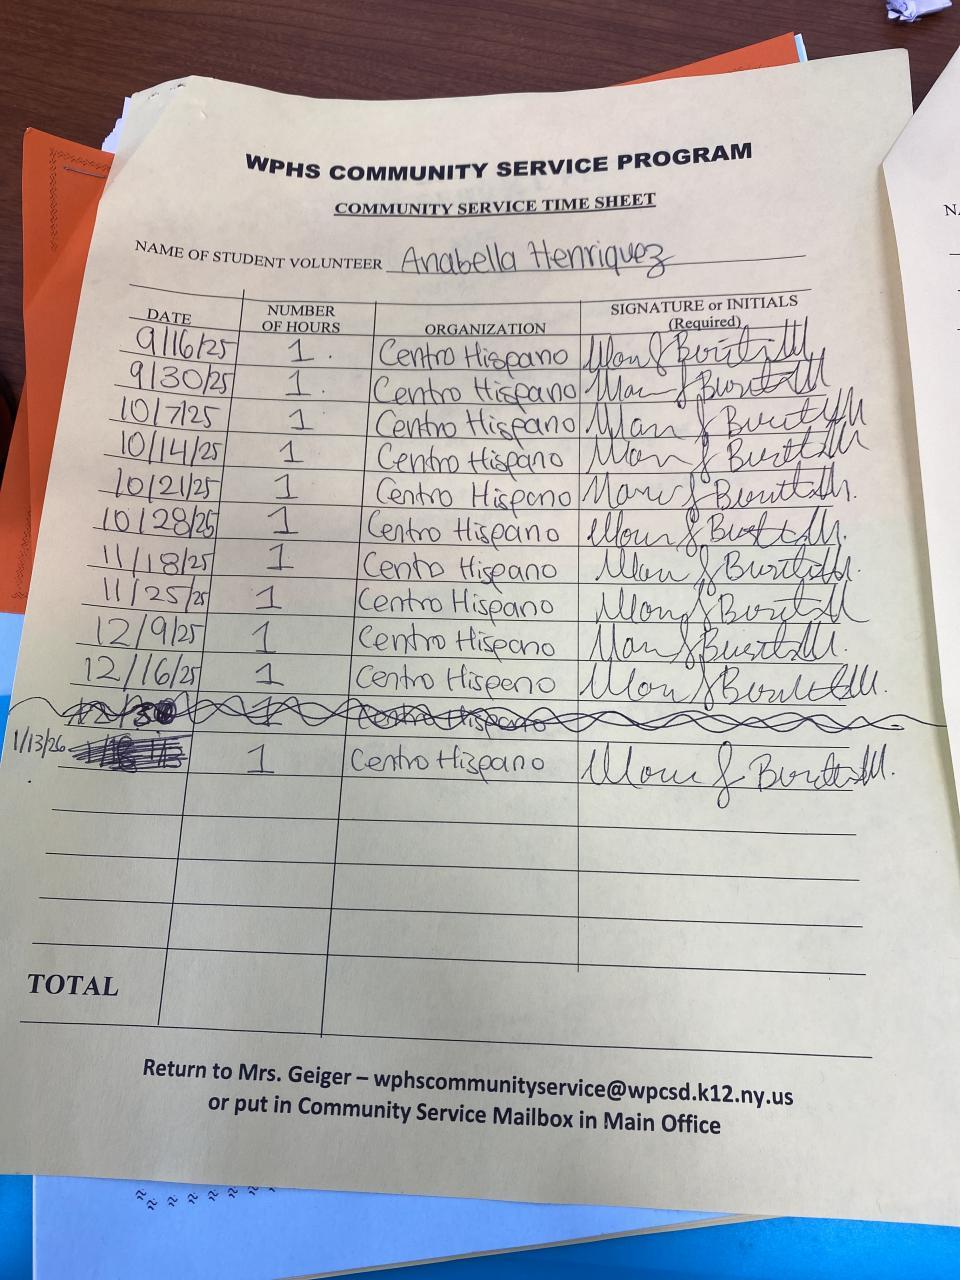 WPHS COMMUNITY SERVICE PROGRAM
COMMUNITY SERVICE TIME SHEET
NAME OF STUDENT VOLUNTEER Anabella Henriquez
DATE NUMBER OF HOURS ORGANIZATION SIGNATURE or INITIALS (Required)
9/16/25 1 Centro Hispano
9/30/25 1 Centro Hispano
10/7/25 1 Centro Hispano
10/14/25 1 Centro Hispano
10/21/25 1 Centro Hispano
10/28/25 1 Centro Hispano
11/18/25 1 Centro Hispano
11/25/25 1 Centro Hispano
12/9/25 1 Centro Hispano
12/16/25 1 Centro Hispano
1 Centro Hispano
1/13/26 1 Centro Hispano
TOTAL
Return to Mrs. Geiger – wphscommunityservice@wpcsd.k12.ny.us
or put in Community Service Mailbox in Main Office